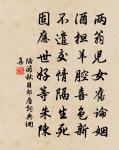 兩翁兒女舊論姻
酒担羊腔喜色新
不遣交情隔生死
固應世好等朱陳
陸游秋日郊居詞典網
集